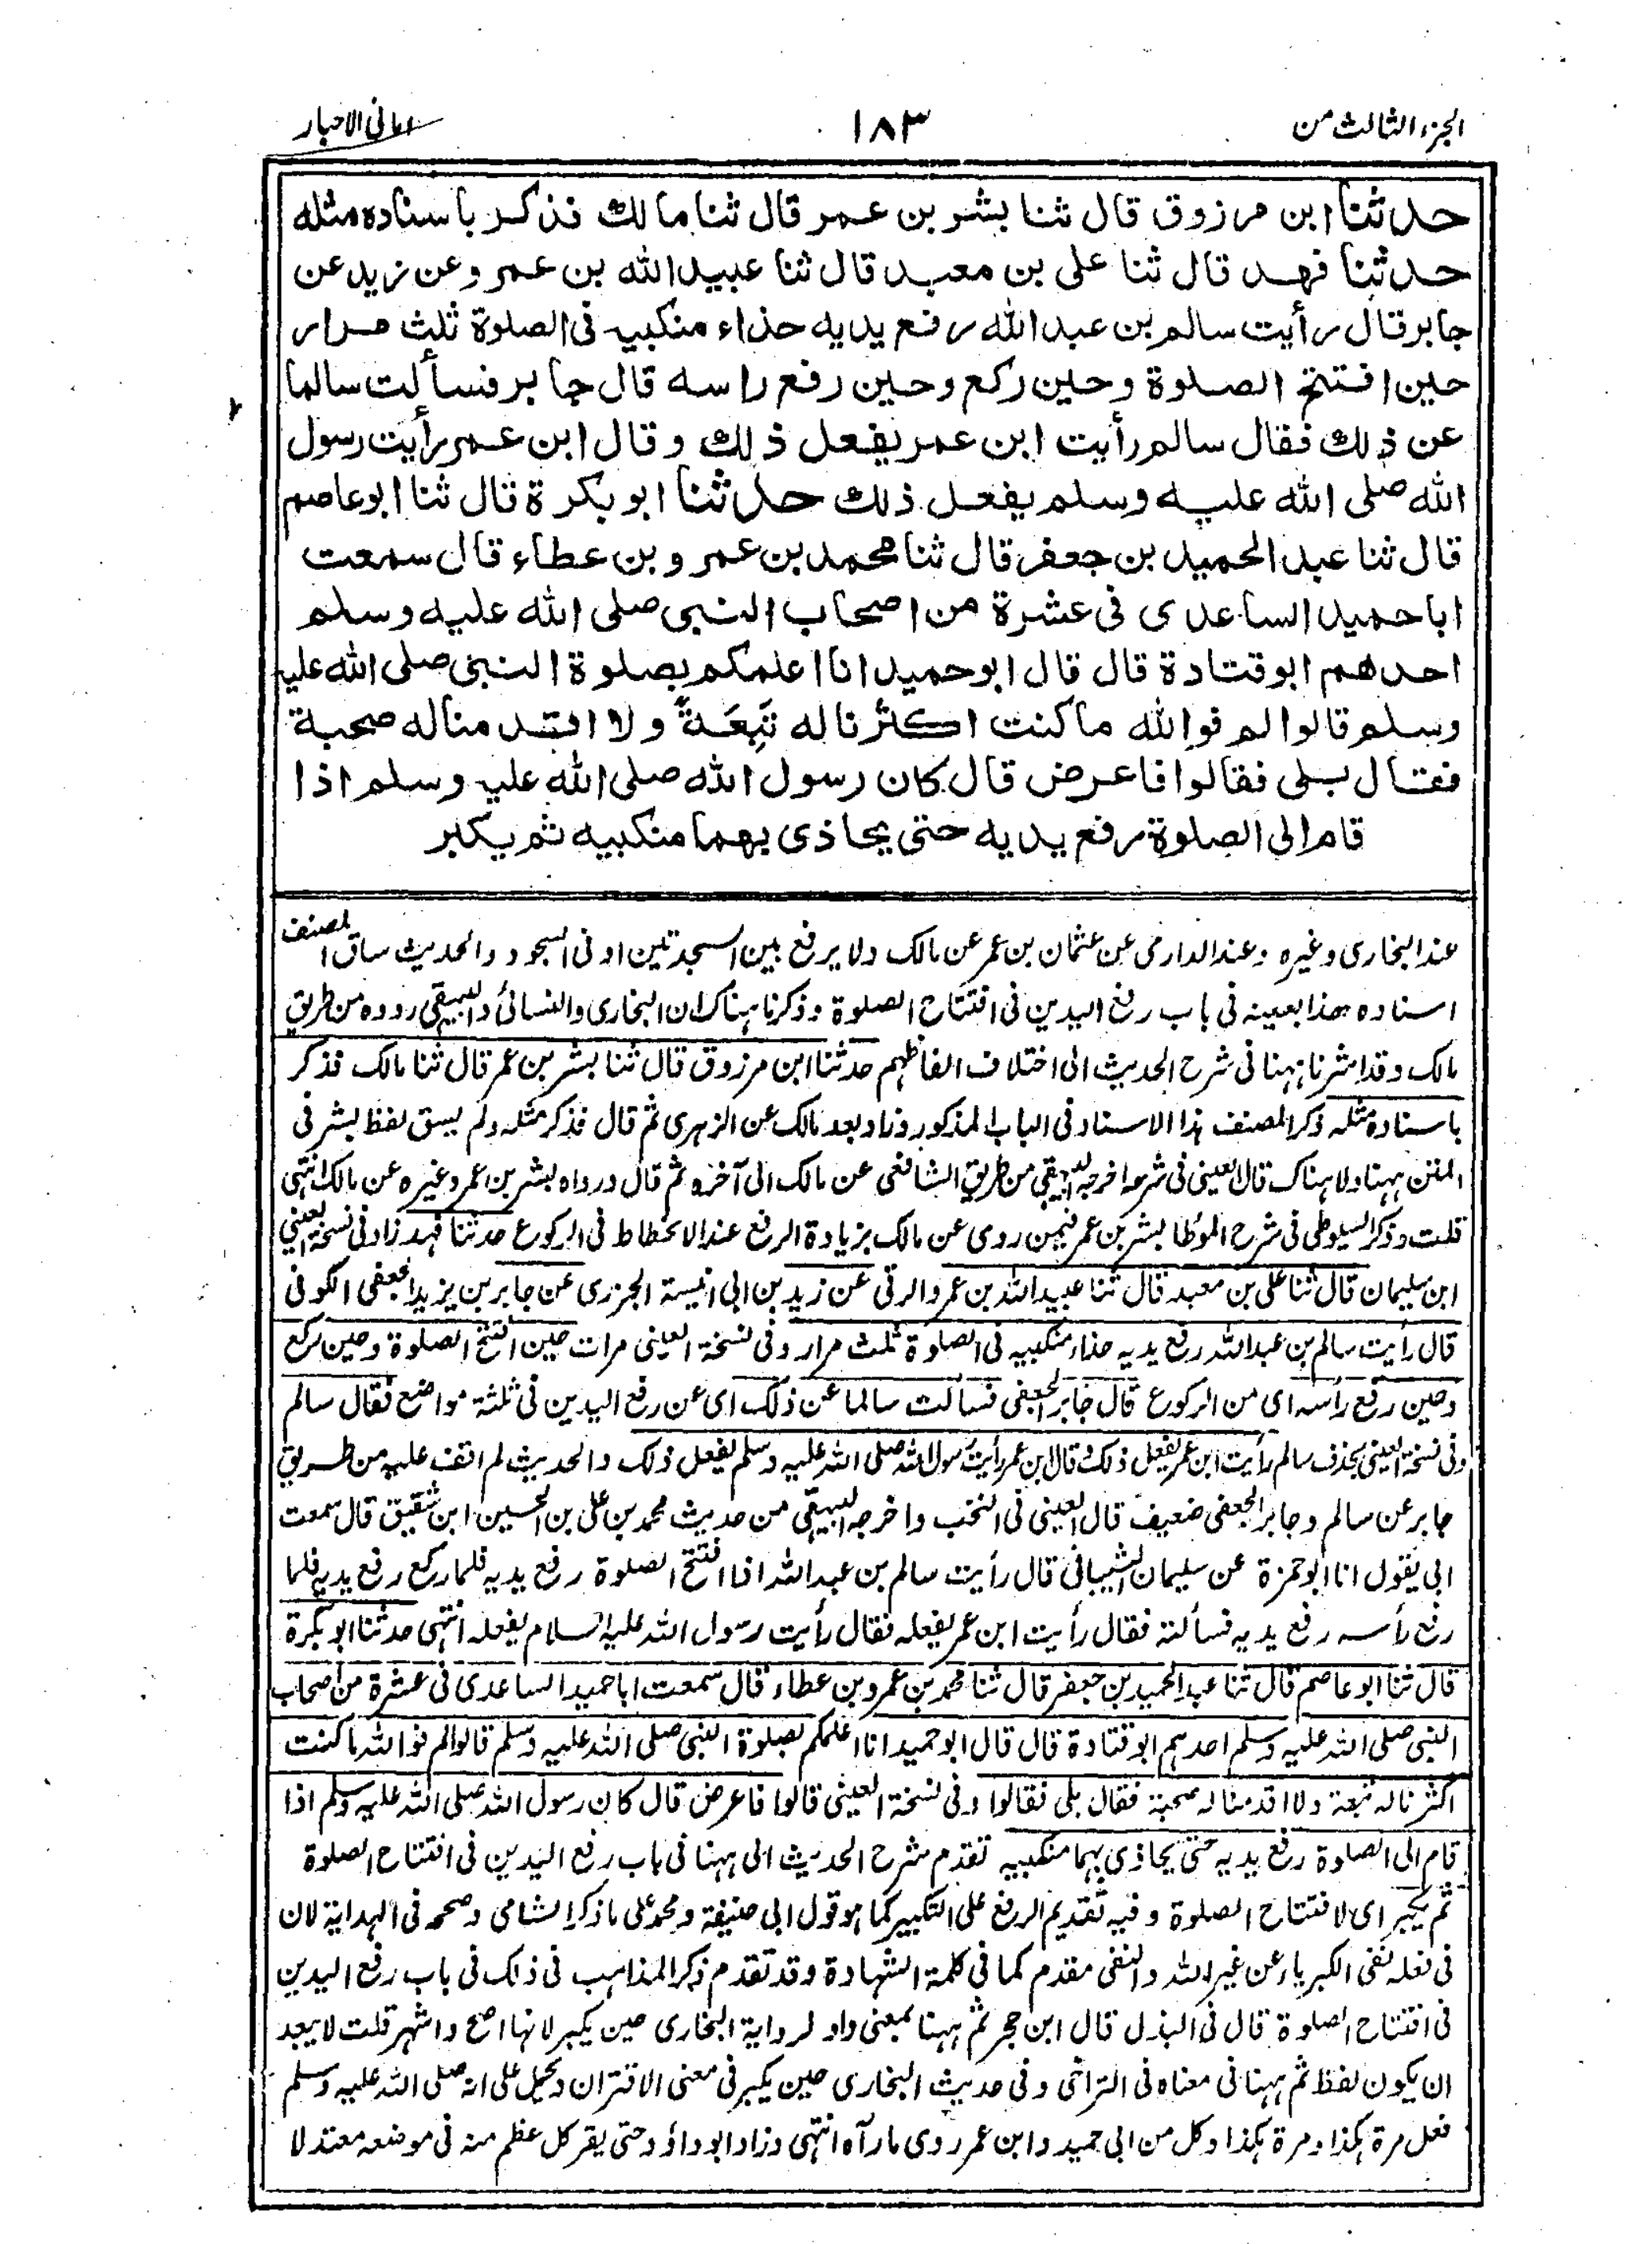 الجزء الثالث من
١٨٣
امانی الاحبار
حدثنا ابن مرزوق قال ثنا بشر بن عمر قال ثنا مالك فذكر باسناده مثله
حدثنا فهد قال ثنا على بن معبد قال ثنا عبيد الله بن عمر وعن زيد عن
جابر قال رأيت سالم بن عبد الله رفع يديه حذاء منكبيه فى الصلوة ثلث مرار
حين افتتح الصلوة وحين ركع وحين رفع راسه قال جابر فسألت سالما
عن ذلك فقال سالم رأيت ابن عمر يفعل ذلك وقال ابن عمر رأيت رسول
الله صلى الله عليه وسلم يفعل ذلك حدثنا ابو بكرة قال ثنا ابو عاصم
قال ثنا عبد الحميد بن جعفر قال ثنا محمد بن عمر و بن عطاء قال سمعت
ابا حميد الساعدى فى عشرة من اصحاب النبى صلى الله عليه وسلم
احدهم ابو قتادة قال قال ابو حميد انا اعلمكم بصلوة النبى صلى الله عليه
وسلم قالوا لم فوالله ما كنت اكثرنا له تَبَعَةً ولا اقدمنا له صحبة
فقال بلى فقالوا فاعرض قال كان رسول الله صلى الله عليه وسلم اذا
قام الى الصلوة رفع يديه حتى يحاذى بهما منكبيه ثم يكبر
عند البخارى وغيره وعند الدارمى عن عثمان بن عمر عن مالك ولا يرفع بين السجدتين او فى السجود والحديث ساق المصنف
اسناده هذا بعينه فى باب رفع اليدين فى افتتاح الصلوة وذكرنا هناك ان البخارى والنسائى والبيهقى رووه من طريق
مالك وقد اشرنا ههنا فى شرح الحديث الى اختلاف الفاظهم حدثنا ابن مرزوق قال ثنا بشر بن عمر قال ثنا مالك فذكر
باسناده مثله ذكر المصنف هذا الاسناد فى الباب المذكور وزاد بعد مالك عن الزهرى ثم قال فذكر مثله ولم يسق لفظ بشر فى
المتن ههنا ولا هناك قال العينى فى شرحه اخرجه البيهقى من طريق الشافعى عن مالك الى آخره ثم قال ورواه بشر بن عمر وغيره عن مالك انتهى
قلت وذكر السيوطى فى شرح الموطا بشر بن عمر فيمن روى عن مالك بزيادة الرفع عند الانحطاط فى الركوع حدثنا فهد زاد فى نسخة العينى
ابن سليمان قال ثنا على بن معبد قال ثنا عبيد الله بن عمرو الرقى عن زيد بن ابى انيسة الجزرى عن جابر بن يزيد الجعفى الكوفى
قال رأيت سالم بن عبد الله رفع يديه حذاء منكبيه فى الصلوة ثلث مرار وفى نسخة العينى مرات حين افتتح الصلوة وحين ركع
وحين رفع رأسه اى من الركوع قال جابر الجعفى فسألت سالما عن ذلك اى عن رفع اليدين فى ثلثة مواضع فقال سالم
وفى نسخة العينى بحذف سالم رأيت ابن عمر يفعل ذلك وقال ابن عمر رأيت رسول الله صلى الله عليه وسلم يفعل ذلك والحديث لم اقف عليه من طريق
جابر عن سالم وجابر الجعفى ضعيف قال العينى فى النخب واخرجه البيهقى من حديث محمد بن على بن الحسين ابن شقيق قال سمعت
ابى يقول انا ابو حمزة عن سليمان الشيبانى قال رأيت سالم بن عبد الله اذا افتتح الصلوة رفع يديه فلما ركع رفع يديه فلما
رفع رأسه رفع يديه فسألته فقال رأيت ابن عمر يفعله فقال رأيت رسول الله عليه السلام يفعله انتهى حدثنا ابو بكرة
قال ثنا ابو عاصم قال ثنا عبد الحميد بن جعفر قال ثنا محمد بن عمرو بن عطاء قال سمعت ابا حميد الساعدى فى عشرة من اصحاب
النبى صلى الله عليه وسلم احدهم ابو قتادة قال قال ابو حميد انا اعلمكم بصلوة النبى صلى الله عليه وسلم قالوا لم فوالله ما كنت
اكثرنا له تبعة ولا اقدمنا له صحبة فقال بلى فقالوا وفى نسخة العينى قالوا فاعرض قال كان رسول الله صلى الله عليه وسلم اذا
قام الى الصلوة رفع يديه حتى يحاذى بهما منكبيه تقدم شرح الحديث الى ههنا فى باب رفع اليدين فى افتتاح الصلوة
ثم يكبر اى لافتتاح الصلوة وفيه تقديم الرفع على التكبير كما هو قول ابى حنيفة ومحمد على ما ذكر الشامى وصححه فى الهداية لان
فى فعله نفى الكبرياء عن غير الله والنفى مقدم كما فى كلمة الشهادة وقد تقدم ذكر المذاهب فى ذلك فى باب رفع اليدين
فى افتتاح الصلوة قال فى البذل قال ابن حجر ثم ههنا بمعنى واو لرواية البخارى حين يكبر لانها اصح واشهر قلت لا يبعد
ان يكون لفظ ثم ههنا فى معناه فى التراخى وفى حديث البخارى حين يكبر فى معنى الاقتران ويحمل على انه صلى الله عليه وسلم
فعل مرة هكذا ومرة هكذا وكل من ابى حميد وابن عمر روى ما رآه انتهى وزاد ابو داؤد حتى يقر كل عظم منه فى موضعه معتدلا